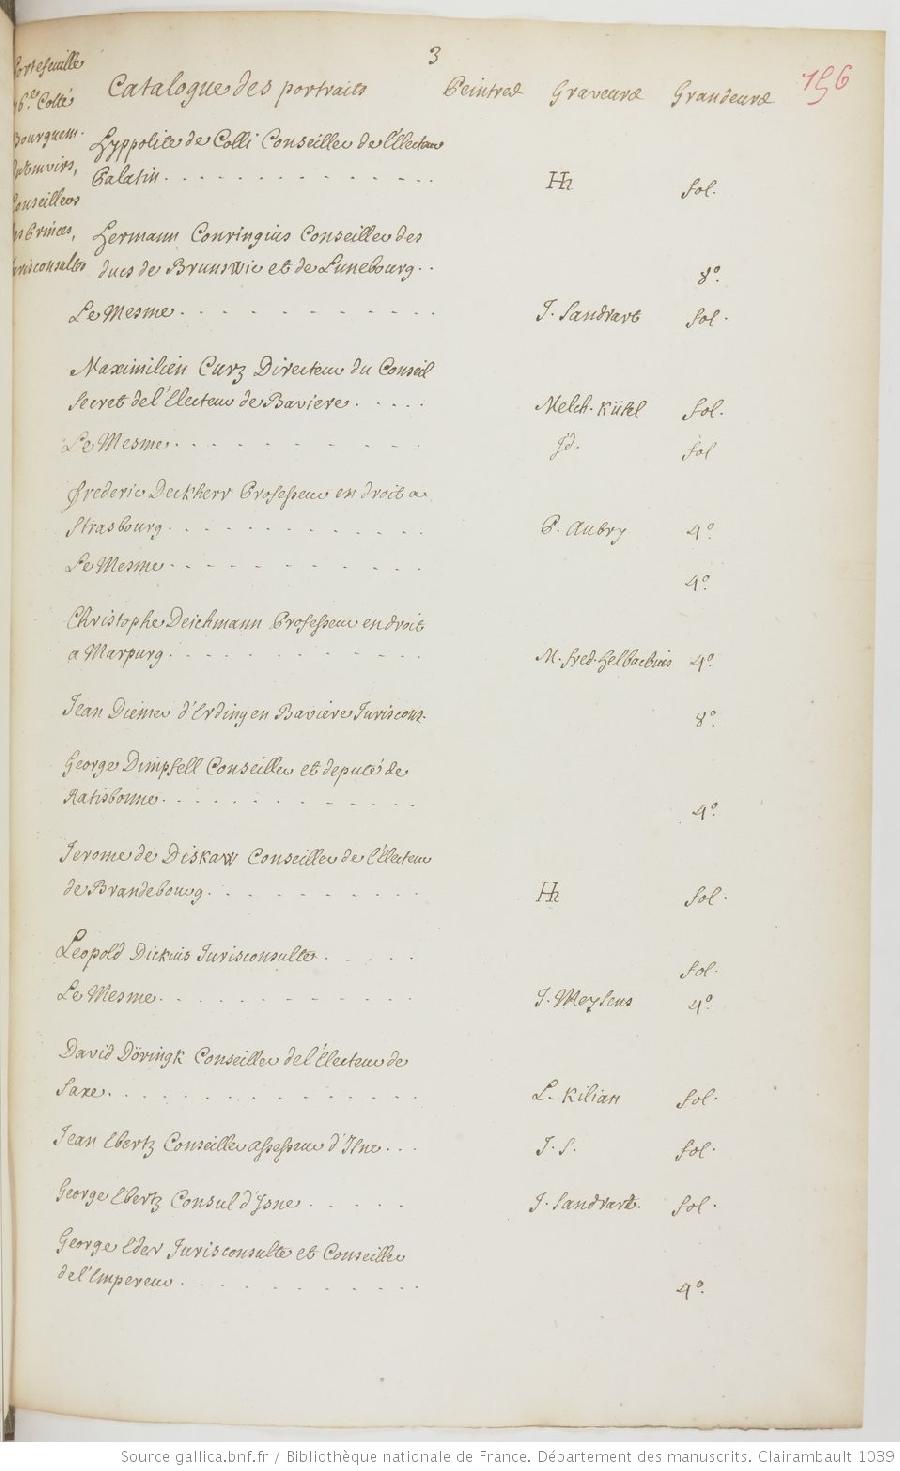 3
Portefeuille
6.e Collé
Bourguem.
Conseillers
des Princes,
Jurisconsultes
Catalogue des portraits Peintres Graveurs Grandeurs 156
Hyppolite de Colli Conseiller de l'Electeur
Palatin. H fol.
Hermann Conringius Conseiller des
ducs de Brunswic et de Lunebourg. 8º.
Le Mesme. J. Sandrart fol.
Maximilien Curz Directeur du Conseil
Secret de l'Electeur de Baviere. Melch. Küsel fol.
Le Mesme. Jd. fol
Frederic Deckherr Professeur en droit a
Strasbourg. P. Aubry 4º.
Le Mesme. 4º.
Christophe Deichmann Professeur en droit
a Marpurg. M. fred. 4º.
Jean Diemer d'Erding en Baviere Juriscons. 8º.
George Dimpfell Conseiller et deputé de
Ratisbonne. 4º.
Jerome de Diskaw Conseiller de l'Electeur
de Brandebourg. H fol.
Leopold Dickius Jurisconsulte. fol.
Le Mesme. J. Meyssens 4º.
David Döringk Conseiller de l'Electeur de
Saxe. L. Kilian fol.
Jean Ebertz Conseiller assesseur d'Isne. J. S. fol.
George Ebertz Consul d'Isne. J. Sandrart. fol.
George Eder Jurisconsulte et Conseiller
de l'Empereur. 4º.
Source gallica.bnf.fr / Bibliothèque nationale de France. Département des manuscrits. Clairambault 1039